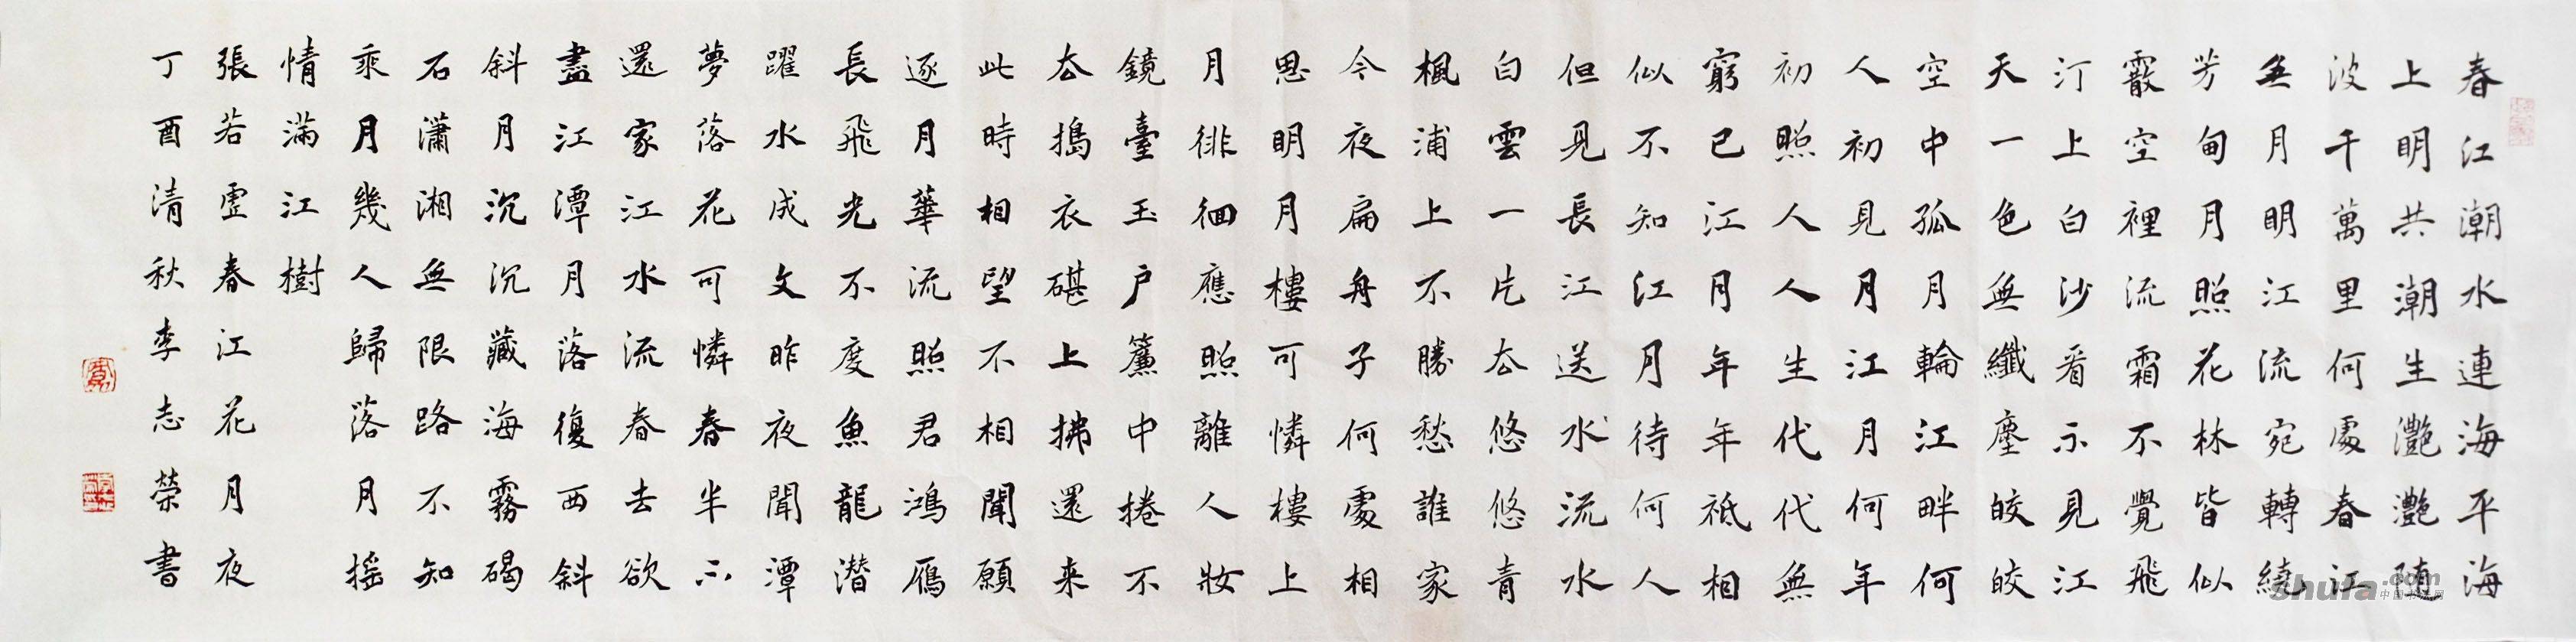 春江潮水連海平海
上明共潮生灔灔随
波千萬里何處春江
無月明江流宛轉繞
芳甸月照花林皆似
霰空裡流霜不覺飛
汀上白沙看不見江
天一色無纖塵皎皎
空中孤月輪江畔何
人初見月江月何年
初照人人生代代無
窮已江月年年祗相
似不知江月待何人
但見長江送水流水
白雲一片去悠悠青
楓浦上不勝愁誰家
今夜扁舟子何處相
思明月樓可憐樓上
月徘徊應照離人妝
鏡臺玉户簾中捲不
去搗衣碪上拂還来
此時相望不相聞願
逐月華流照君鴻雁
長飛光不度魚龍潜
躍水成文昨夜聞潭
夢落花可憐春半不
還家江水流春去欲
盡江潭月落復西斜
斜月沉沉藏海霧碣
石瀟湘無限路不知
乘月幾人歸落月摇
情滿江樹
張若虚春江花月夜
丁酉清秋李志榮書
shufa.com
中国书法网